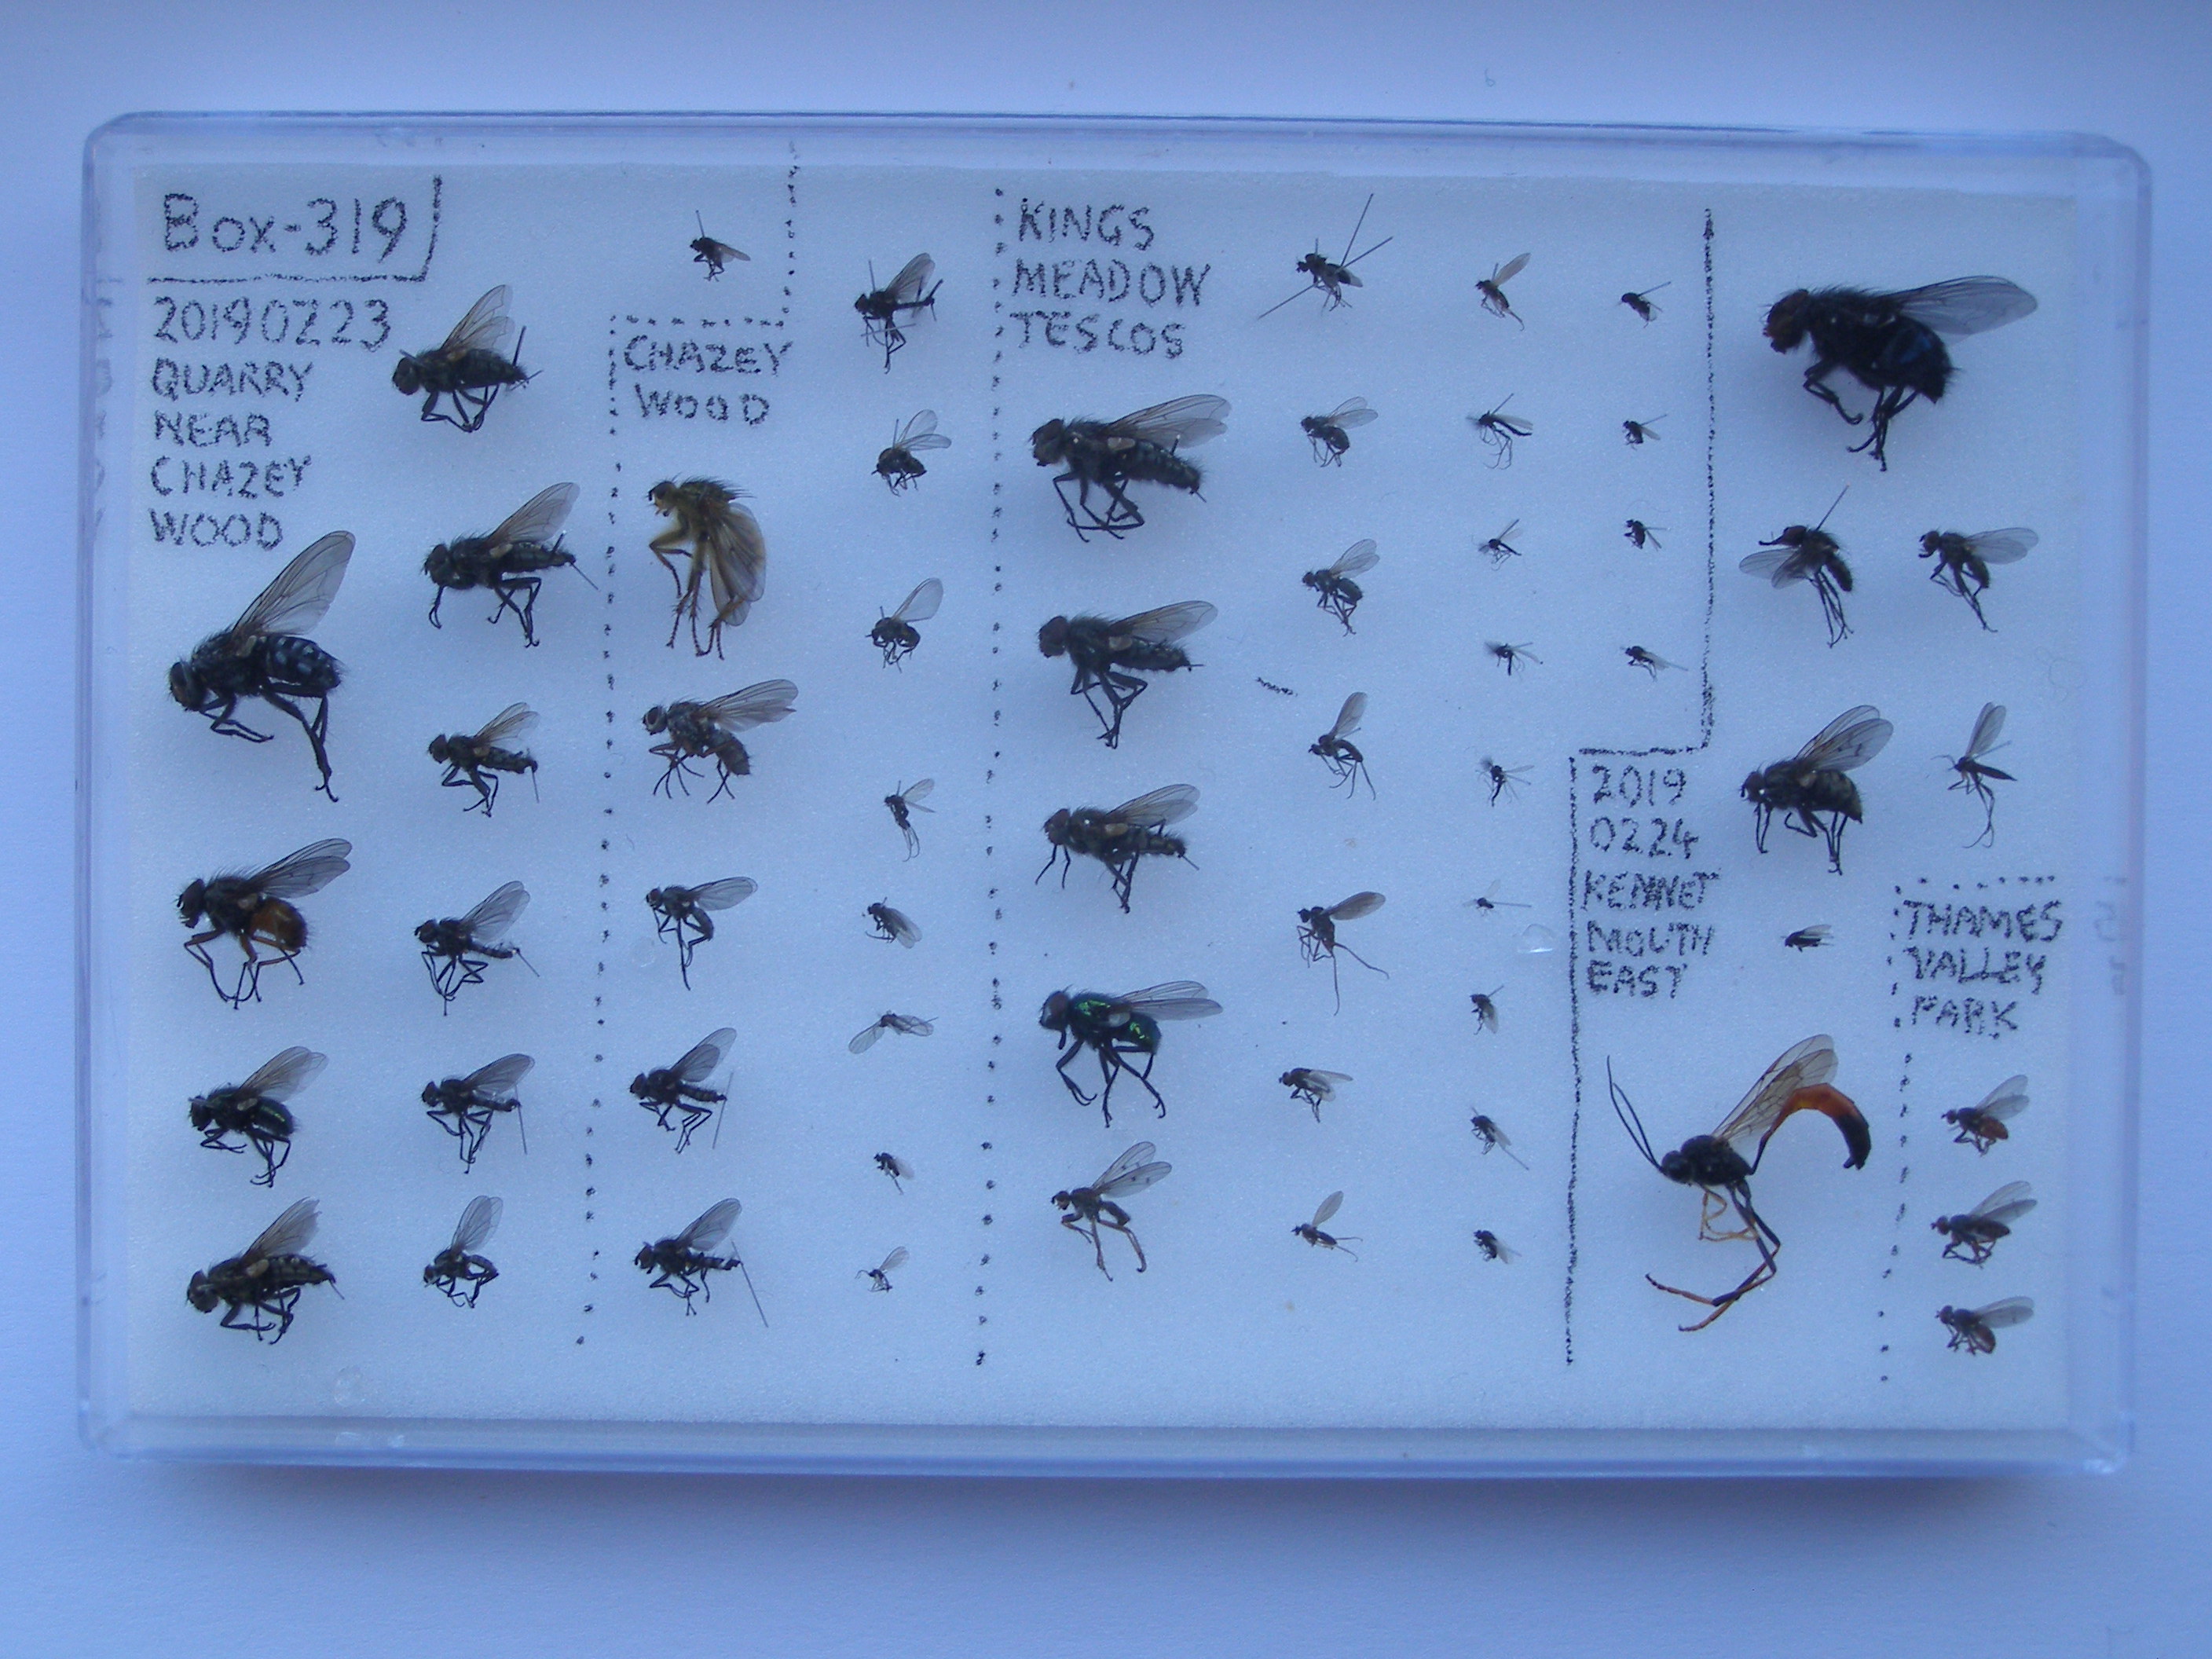 Box-319
20190223
QUARRY
NEAR
CHAZEY
WOOD
CHAZEY
WOOD
KINGS
MEADOW
TESCOS
2019
0224
KENNET
MOUTH
EAST
THAMES
VALLEY
PARK